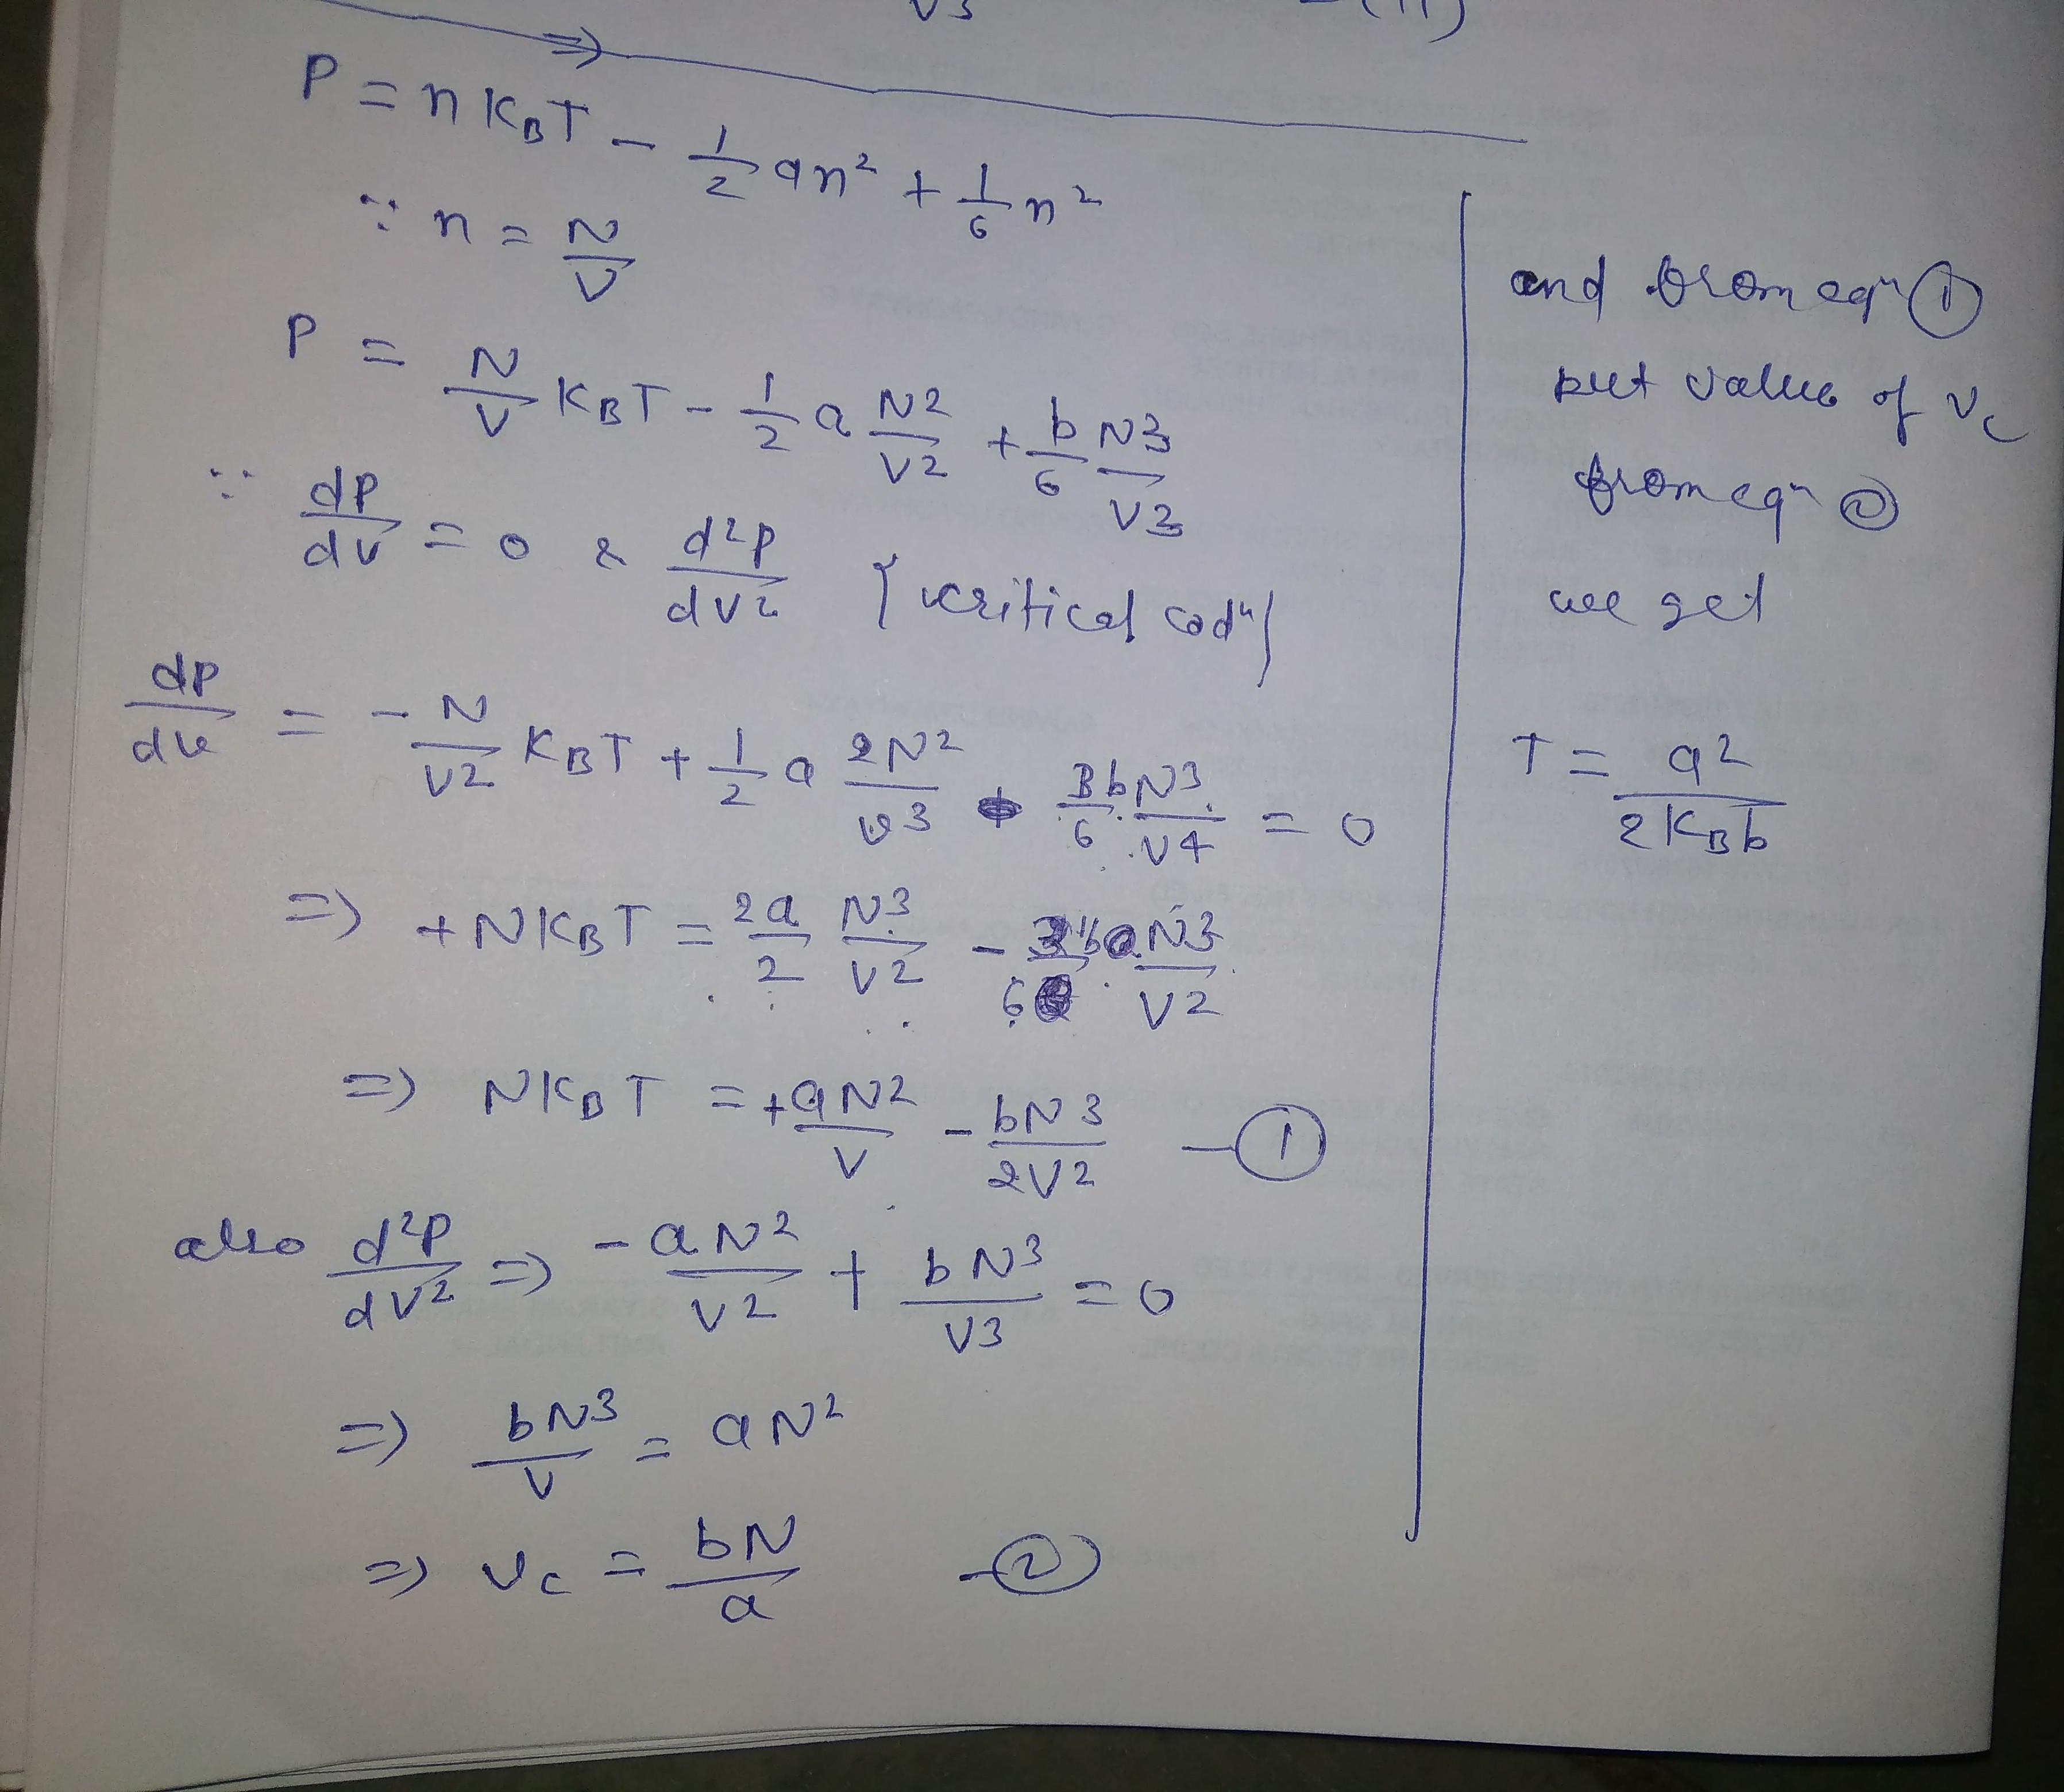 V3 – (11)
⇒
P = n KBT – 1/2 an² + 1/6 n²
∵ n = N/V
P = N/V KBT – 1/2 a N2/V2 + b/6 N3/V3
∵ dP/dV = 0 & d²P/dV² { critical codⁿ }
dP/dV = – N/V2 KBT + 1/2 a 2N²/V3 3bN3/6 V4 = 0
⇒ + NKBT = 2a/2 N3/V2 – N3/6 V2
⇒ NKBT = + aN2/V – bN3/2V2 – ①
also d²P/dV² ⇒ – aN²/V2 + bN³/V3 = 0
⇒ bN3/V = aN²
⇒ Vc = bN/a – ②
and from eqⁿ ①
put value of Vc
from eqⁿ ②
we get
T = a2/2KBb